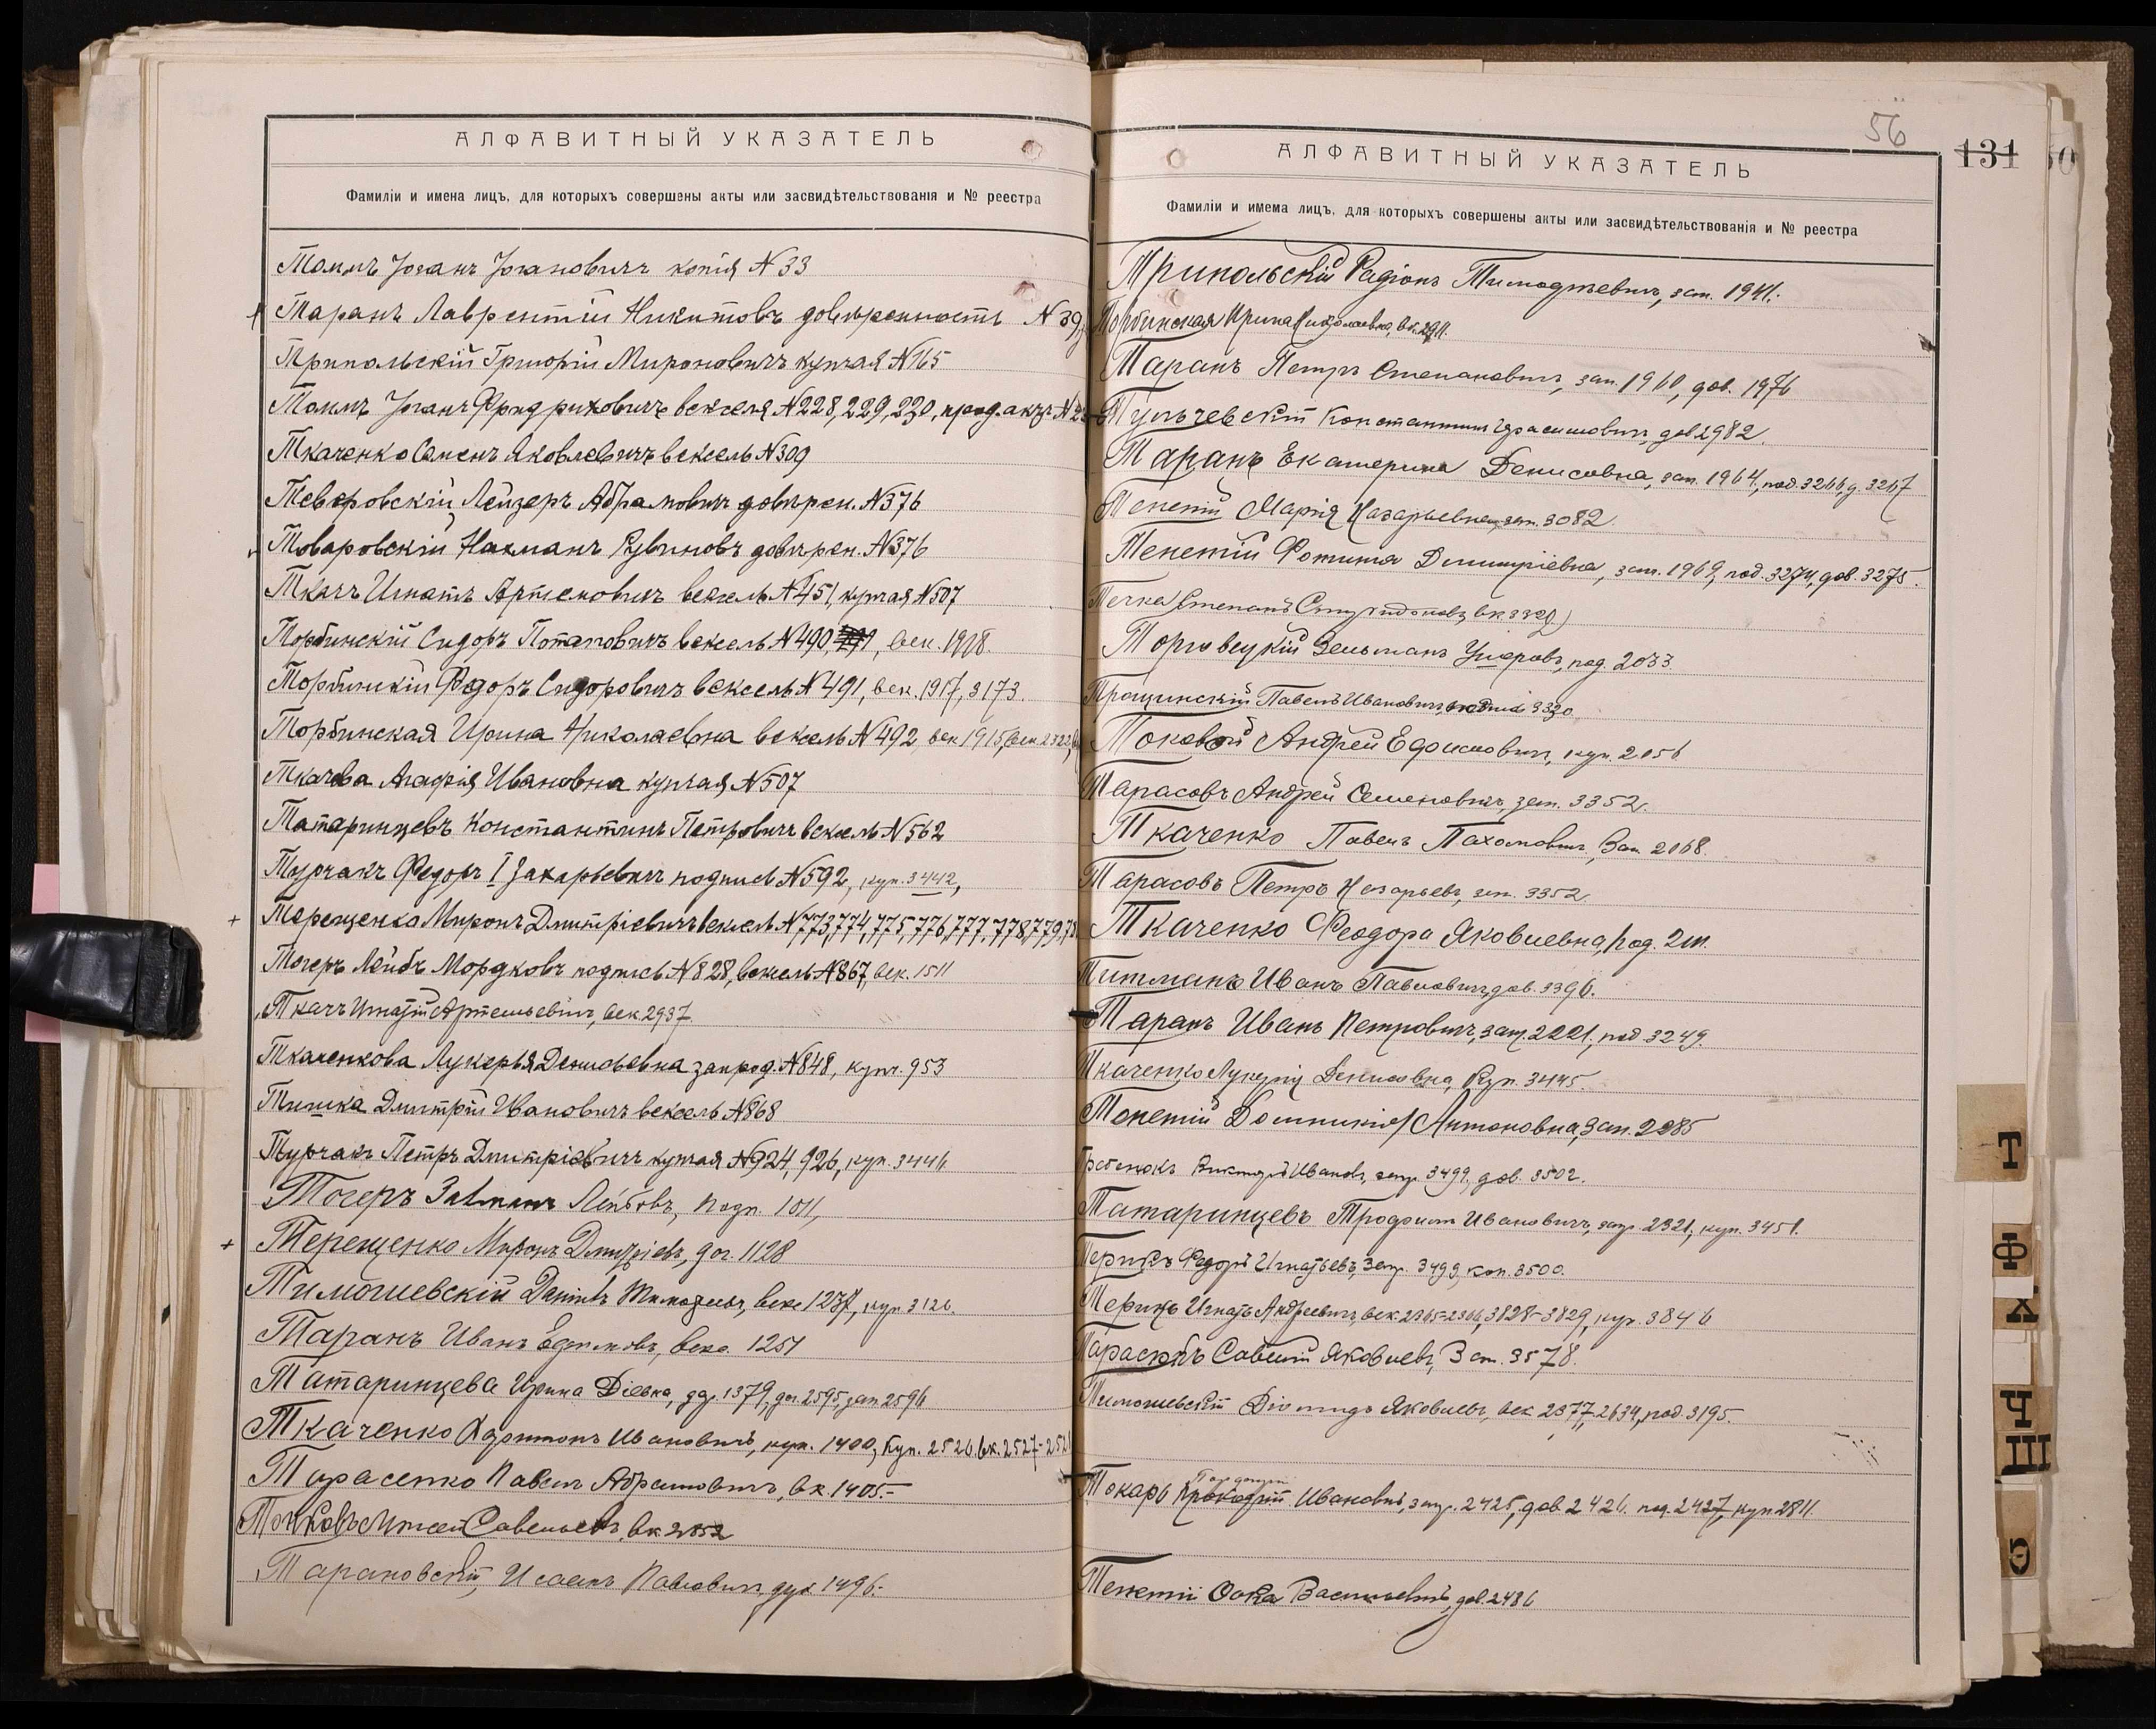 АЛФАВИТНЫЙ УКАЗАТЕЛЬ
Фамиліи и имена лицъ, для которыхъ совершены акты или засвидѣтельствованія и № реестра
Томмъ Іоганъ Іогановичъ копія N 33
+ Таранъ Лаврентій Никитовъ довѣренность N 39,
Трипольскій Григорій Мироновичъ купчая N 165
Томмъ Іоганъ Фридриховичъ векселя N 228, 229, 230,
Ткаченко Семенъ Яковлевичъ вексель N 309
Теверовскій Лейзеръ Абрамовичъ довѣрен. N 376
Товаровскій Нахманъ Рувиновъ довѣрен. N 376
Ткачъ Игнатъ Артемовичъ вексель N 451, купчая N 507
Торбинскій Сидоръ Потаповичъ вексель N 490, век. 1918.
Торбинскій Федоръ Сидоровичъ вексель N 491, век. 1917, 3173.
Торбинская Ирина Николаевна вексель N 492 век 1915, век. 2322,
Ткачева Агафія Ивановна купчая N 507
Татаринцевъ Константинъ Петровичъ вексель N 562
Турчакъ Федоръ I Захарьевичъ подпись N 592, куп. 3442,
+ Терещенко Миронъ Дмитріевичъ вексель N 773, 774, 775, 776, 777, 778, 779,
Тогеръ Лейбъ Мордковъ подпись N 828, вексель N 867, век. 1511
Ткачъ Игнатій Артемьевичъ, век. 2937
Ткаченкова Лукерья Денисьевна запрод. N 848, купч. 953
Тишка Дмитрій Ивановичъ вексель N 868
Турчакъ Петръ Дмитріевичъ купчая N 924, 926, куп. 3446
Тогеръ Залманъ Лейбовъ, подп. 1011,
+ Терещенко Миронъ Дмитріевъ, дог. 1128
Тимошевскій Даніилъ Тимофеевъ, векс 1237, куп 3126.
Таранъ Иванъ Ефимовъ, векс. 1251
Татаринцева Ирина Діевна, 1379, дог. 2595, зап 2596
Ткаченко Харитонъ Ивановичъ, куп. 1400, куп. 2526. вк. 2527-252
Тарасенко Павелъ Абрамовичъ, вк. 1405.-
Савельевъ, вк 2852
Тарановскій, Исаакъ Павловичъ, дух. 1496.-
56
131
АЛФАВИТНЫЙ УКАЗАТЕЛЬ
Фамиліи и имема лицъ, для которыхъ совершены акты или засвидѣтельствованія и № реестра
Трипольскій Радіонъ Тимофѣевичъ, зап. 1941.
Торбинская Ирина Николаевна, вк. 2911.
Таранъ Петръ Степановичъ, зап. 1960, дов. 1976
Тульчевскій Константинъ Герасимовичъ, дов 2982.
Таранъ Екатерина Денисовна, зап. 1964, под. 3266, д. 3267
Тенетій Марія Назарьевна, зап. 3082.
Тенетій Фотинія Димитріевна, зап. 1969, под. 3274, дов. 3275.
Течка Степанъ вк 3329
Торговецкій Зельманъ Ушеровъ, под. 2033
Трощинскій Павелъ Ивановичъ, 3330
Токовой Андрей Ефимовичъ, куп. 2056
Тарасовъ Андрей Семеновичъ, зап. 3352.
Ткаченко Павелъ Пахомовичъ, Зап. 2068.
Тарасовъ Петръ Назарьевъ, зап. 3352
Ткаченко Феодора Яковлевна, под. 2111.
Титманъ Иванъ Павловичъ, дов. 3396.
Таранъ Иванъ Петровичъ, зап. 2221, под. 3249.
Ткаченко Лукерія Денисовна, Куп. 3445.
Тенетій Домникія Антоновна, Зап. 2285
Иванов, зап. 3499, дов. 3502.
Татаринцевъ Трофимъ Ивановичъ, зап. 2321, куп. 3451.
Федоръ Игнатьевъ, Зап. 3499, коп. 3500.
Терикъ Игнатъ Андреевичъ, век. 2365-2366, 3828-3829, куп. 3846
Савелій Яковлевъ, Зап. 3578.
Тимошевскій Діомидъ Яковлевъ, век 2377, 2634, под. 3195.
Токарь Ивановъ, зап. 2425, дов. 2426. под. 2427, куп 2811.
Тенетій Фока Васильевичъ, дов. 2486
Т
Ф
Х
Ч
Ш